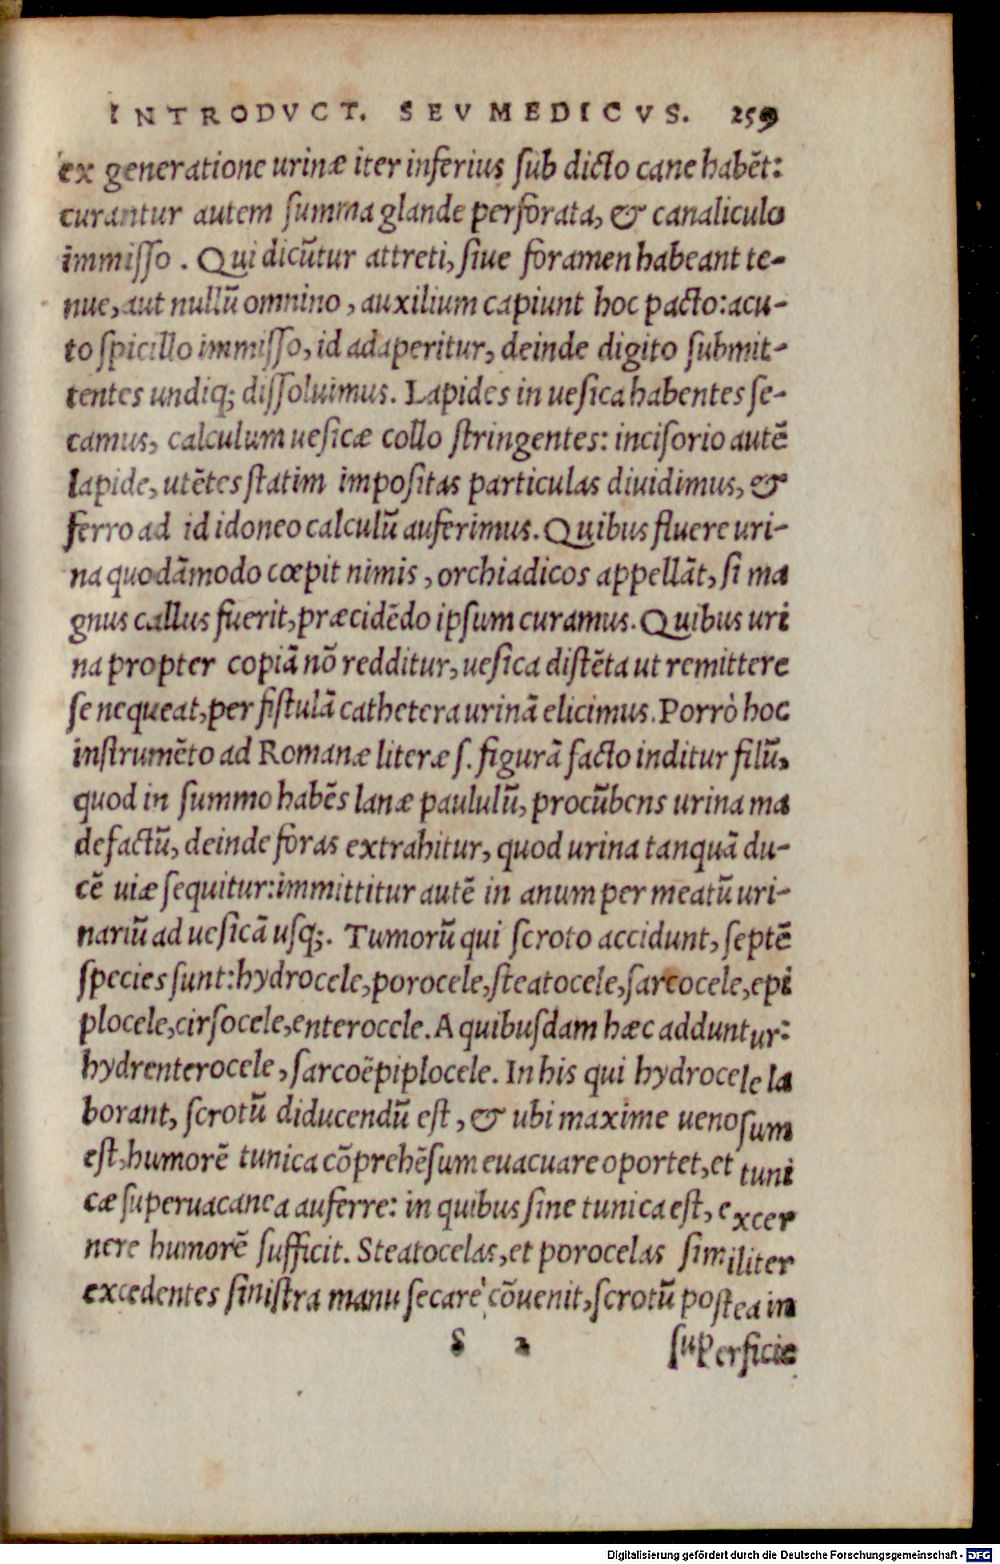 INTRODVCT. SEV MEDICVS. 259
ex generatione urinæ iter inferius sub dicto cane habẽt:
curantur autem summa glande perforata, & canaliculo
immisso. Qui dicũtur attreti, siue foramen habeant te-
nue, aut nullũ omnino, auxilium capiunt hoc pacto: acu-
to spicillo immisso, id adaperitur, deinde digito submit-
tentes undiq; dissoluimus. Lapides in uesica habentes se-
camus, calculum uesicæ collo stringentes: incisorio autẽ
lapide, utẽtes statim impositas particulas diuidimus, &
ferro ad id idoneo calculũ auferimus. Quibus fluere uri-
na quodãmodo cœpit nimis, orchiadicos appellãt, si ma
gnus callus fuerit, præcidẽdo ipsum curamus. Quibus uri
na propter copiã nõ redditur, uesica distẽta ut remittere
se nequeat, per fistulã cathetera urinã elicimus. Porrò hoc
instrumẽto ad Romanæ literæ s. figurã facto inditur filũ,
quod in summo habẽs lanæ paululũ, procũbens urina ma
defactũ, deinde foras extrahitur, quod urina tanquã du-
cẽ uiæ sequitur: immittitur autẽ in anum per meatũ uri-
nariũ ad uesicã usq;. Tumorũ qui scroto accidunt, septẽ
species sunt: hydrocele, porocele, steatocele, sarcocele, epi
plocele, cirsocele, enterocele. A quibusdam hæc adduntur:
hydrenterocele, sarcoẽpiplocele. In his qui hydrocele la
borant, scrotũ diducendũ est, & ubi maxime uenosum
est, humorẽ tunica cõprehẽsum euacuare oportet, et tuni
cæ superuacanea auferre: in quibus sine tunica est, excer
nere humorẽ sufficit. Steatocelas, et porocelas similiter
excedentes sinistra manu secare cõuenit, scrotũ postea in
S 2 superficie
Digitalisierung gefördert durch die Deutsche Forschungsgemeinschaft - DFG